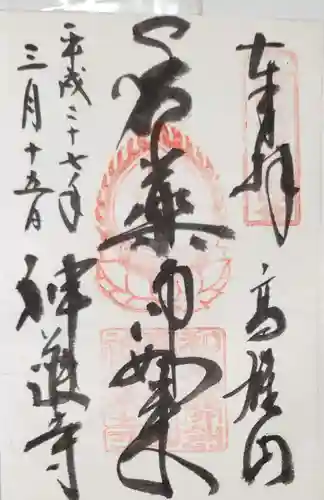 奉拝
高雄山
薬師如来
神護寺
平成二十七年
三月十五日